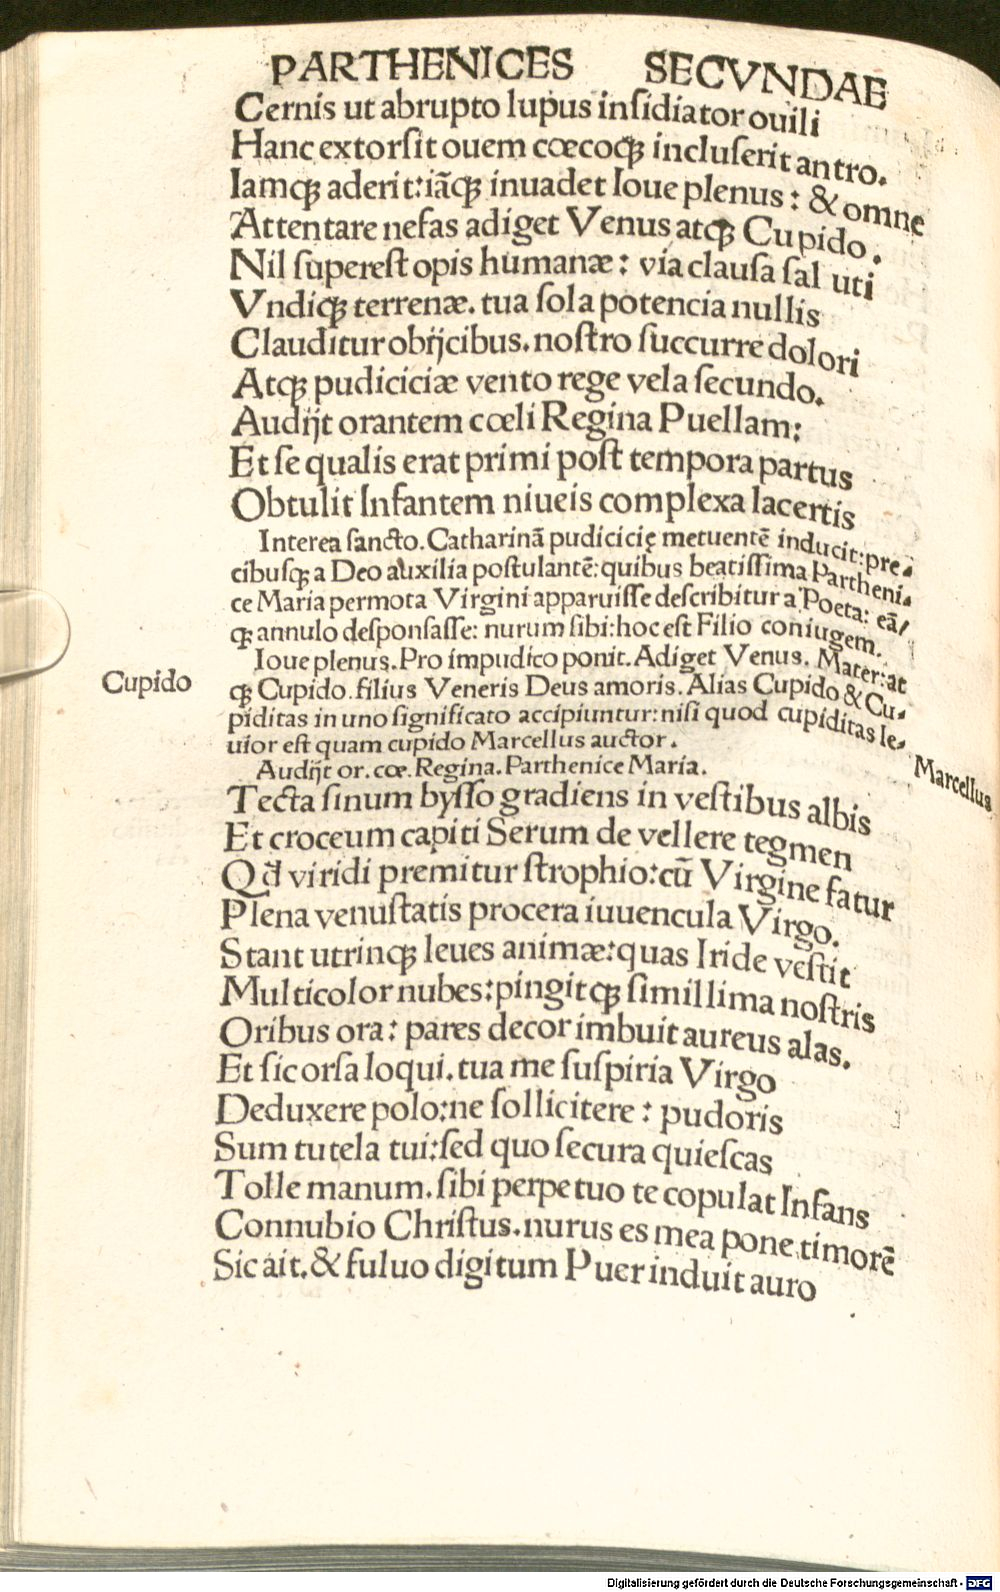 PARTHENICES SECVNDAE
Cernis ut abrupto lupus insidiator ouili
Hanc extorsit ouem cœcoqꝫ incluserit antro.
Iamqꝫ aderit: iãqꝫ inuadet Ioue plenus: & omne
Attentare nefas adiget Venus atqꝫ Cupido.
Nil superest opis humanæ: via clausa sal uti
Vndiqꝫ terrenæ. tua sola potencia nullis
Clauditur obijcibus. nostro succurre dolori
Atqꝫ pudiciciæ vento rege vela secundo.
Audijt orantem cœli Regina Puellam:
Et se qualis erat primi post tempora partus
Obtulit Infantem niueis complexa lacertis
Interea sancto. Catharinã pudicicię metuentẽ inducit: pre-
cibusqꝫ a Deo auxilia postulantẽ: quibus beatissima Partheni-
ce Maria permota Virgini apparuisse describitur a Poeta: eã/
qꝫ annulo desponsasse: nurum sibi: hoc est Filio coniugem.
Ioue plenus. Pro impudico ponit. Adiget Venus. Mater: at
Cupido
qꝫ Cupido. filius Veneris Deus amoris. Alias Cupido & Cu-
piditas in uno significato accipiuntur: nisi quod cupiditas le-
uior est quam cupido Marcellus auctor.
Marcellus
Audijt or. cœ. Regina. Parthenice Maria.
Tecta sinum bysso gradiens in vestibus albis
Et croceum capiti Serum de vellere tegmen
Qđ viridi premitur strophio: cũ Virgine fatur
Plena venustatis procera iuuencula Virgo.
Stant utrinqꝫ leues animæ: quas Iride vestit
Multicolor nubes: pingitqꝫ simillima nostris
Oribus ora: pares decor imbuit aureus alas.
Et sic orsa loqui. tua me suspiria Virgo
Deduxere polo: ne sollicitere: pudoris
Sum tutela tui: sed quo secura quiescas
Tolle manum. sibi perpetuo te copulat Infans
Connubio Christus. nurus es mea pone timorẽ
Sic ait. & fuluo digitum Puer induit auro
Digitalisierung gefördert durch die Deutsche Forschungsgemeinschaft - DFG